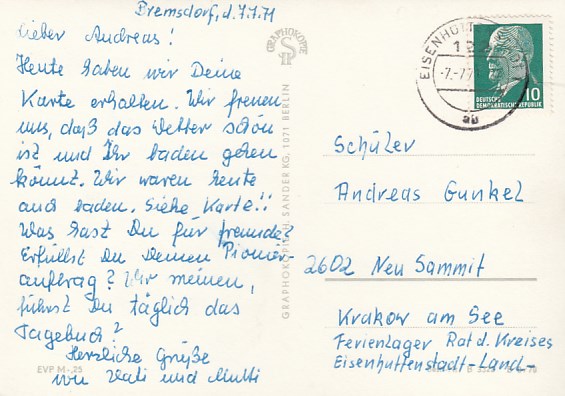 Bremsdorf, d. 7.7.71
Lieber Andreas!
Heute haben wir Deine
Karte erhalten. Wir freuen
uns, daß das Wetter schön
ist und Ihr baden gehen
könnt. Wir waren heute
auch baden. Siehe Karte!!
Was hast Du für Freunde?
Erfüllst Du Deinen Pionier-
auftrag? Wir meinen,
führst Du täglich das
Tagebuch?
Herzliche Grüße
von Vati und Mutti
EVP M -,25
GRAPHOKOPIE
GRAPHOKOPIE H. SANDER KG, 1071 BERLIN
EISENHÜTT
-7.-7.71
ab
10
DEUTSCHE
DEMOKRATISCHE REPUBLIK
Schüler
Andreas Gunkel
2602 Neu Sammit
Krakow am See
Ferienlager Rat d. Kreises
Eisenhüttenstadt-Land-